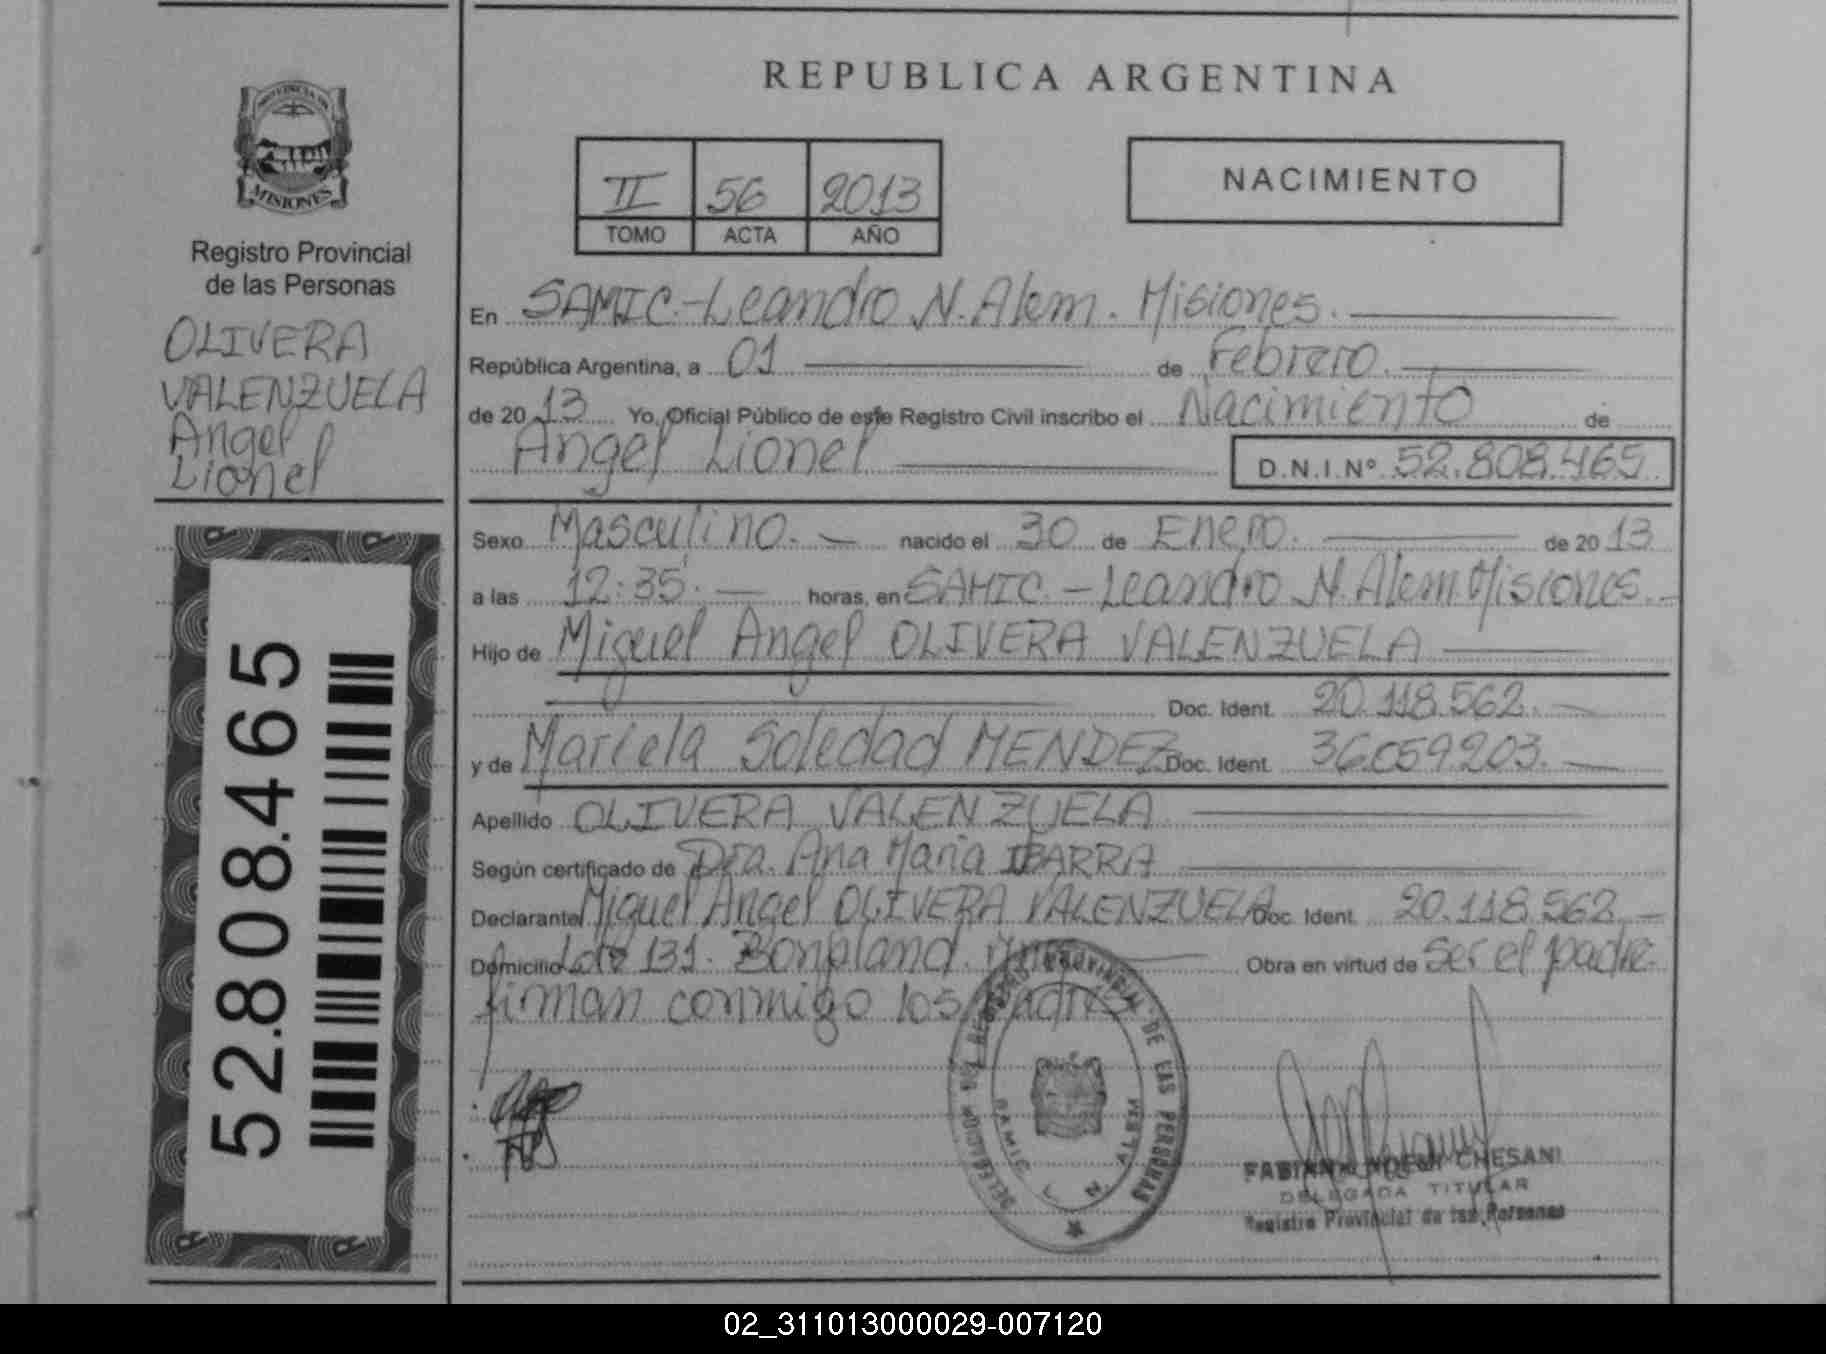 PROVINCIA DE
MISIONES
Registro Provincial
de las Personas
OLIVERA
VALENZUELA
Angel
Lionel
52.808.465
REPUBLICA ARGENTINA
II 56 2013
TOMO ACTA AÑO
NACIMIENTO
En SAMIC.-Leandro N. Alem. Misiones.
República Argentina, a 01 de Febrero.
de 20 13 Yo, Oficial Público de este Registro Civil inscribo el Nacimiento de
Angel Lionel D.N.I.Nº 52.808.465
Sexo Masculino. nacido el 30 de Enero. de 20 13
a las 12:35. horas, en SAMIC.-Leandro N. Alem Misiones.
Hijo de Miguel Angel OLIVERA VALENZUELA
Doc. Ident. 20.118.562.
y de Mariela Soledad MENDEZ Doc. Ident. 36.059.203.
Apellido OLIVERA VALENZUELA
Según certificado de Dra. Ana Maria IBARRA
Declarante Miguel Angel OLIVERA VALENZUELA Doc. Ident. 20.118.562
Domicilio Lote 131. Bonpland. Obra en virtud de Ser el padre.
firman conmigo los padres
DELEGACION DEL REGISTRO PROVINCIAL DE LAS PERSONAS
SAMIC L. N. ALEM
FABIANA NOEMI CHESANI
DELEGADA TITULAR
Registro Provincial de las Personas
02_311013000029-007120